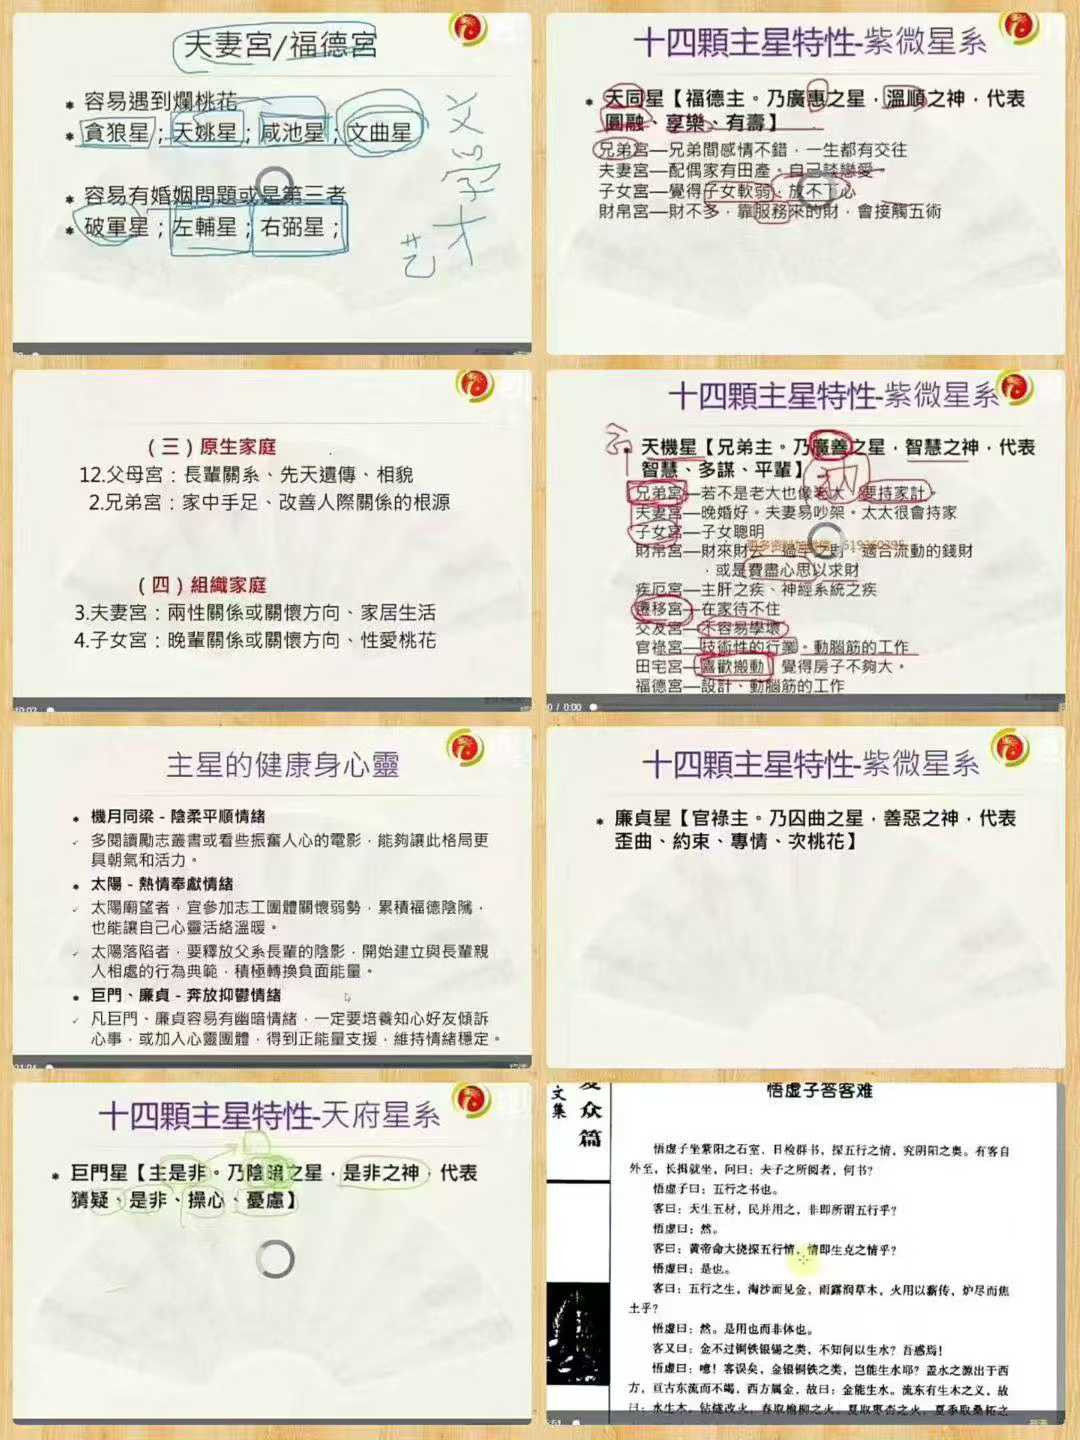 夫妻宮/福德宮
容易遇到爛桃花
貪狼星；天姚星；咸池星；文曲星
文学
艺才
容易有婚姻問題或是第三者
破軍星；左輔星；右弼星；
十四顆主星特性-紫微星系
天同星【福德主。乃廣惠之星，溫順之神，代表
圓融、享樂、有壽】
兄弟宮—兄弟間感情不錯，一生都有交往
夫妻宮—配偶家有田產。自己談戀愛。
子女宮—覺得子女軟弱，放不下心
財帛宮—財不多，靠服務來的財，會接觸五術
（三）原生家庭
12.父母宮：長輩關系、先天遺傳、相貌
2.兄弟宮：家中手足、改善人際關係的根源
（四）組織家庭
3.夫妻宮：兩性關係或關懷方向、家居生活
4.子女宮：晚輩關係或關懷方向、性愛桃花
十四顆主星特性-紫微星系
天機星【兄弟主。乃廣善之星，智慧之神，代表
智慧、多謀、平輩】
兄弟宮—若不是老大也像老大，要持家計。
夫妻宮—晚婚好。夫妻易吵架。太太很會持家
子女宮—子女聰明
財帛宮—財來財去，過手之財，適合流動的錢財
，或是費盡心思以求財
疾厄宮—主肝之疾、神經系統之疾
遷移宮—在家待不住
交友宮—不容易學壞
官祿宮—技術性的行業。動腦筋的工作
田宅宮—喜歡搬動，覺得房子不夠大。
福德宮—設計、動腦筋的工作
0 / 0:00
主星的健康身心靈
機月同梁－陰柔平順情緒
多閱讀勵志叢書或看些振奮人心的電影，能夠讓此格局更
具朝氣和活力。
太陽－熱情奉獻情緒
太陽廟望者，宜參加志工團體關懷弱勢，累積福德陰騭，
也能讓自己心靈活絡溫暖。
太陽落陷者，要釋放父系長輩的陰影，開始建立與長輩親
人相處的行為典範，積極轉換負面能量。
巨門、廉貞－奔放抑鬱情緒
凡巨門、廉貞容易有幽暗情緒，一定要培養知心好友傾訴
心事，或加入心靈團體，得到正能量支援，維持情緒穩定。
十四顆主星特性-紫微星系
廉貞星【官祿主。乃囚曲之星，善惡之神，代表
歪曲、約束、專情、次桃花】
十四顆主星特性-天府星系
巨門星【主是非。乃陰暗之星，是非之神，代表
猜疑、是非、操心、憂慮】
文集
众篇
悟虚子答客难
悟虚子坐紫阳之石室，日检群书，探五行之情，究阴阳之奥。有客自
外至，长揖就坐，问曰：夫子之所阅者，何书？
悟虚子曰：五行之书也。
客曰：天生五材，民并用之，非即所谓五行乎？
悟虚曰：然。
客曰：黄帝命大挠探五行情，情即生克之情乎？
悟虚曰：是也。
客曰：五行之生，淘沙而见金，雨露润草木，火用以薪传，炉尽而焦
土乎？
悟虚曰：然。是用也而非体也。
客又曰：金不过铜铁银锡之类，不知何以生水？吾惑焉！
悟虚曰：噫！客误矣，金银铜铁之类，岂能生水耶？盖水之源出于西
方，亘古东流而不竭，西方属金，故曰：金能生水。流东有生木之义，故
曰：水生木，钻燧改火，春取榆柳之火，夏取枣杏之火，夏季取桑柘之